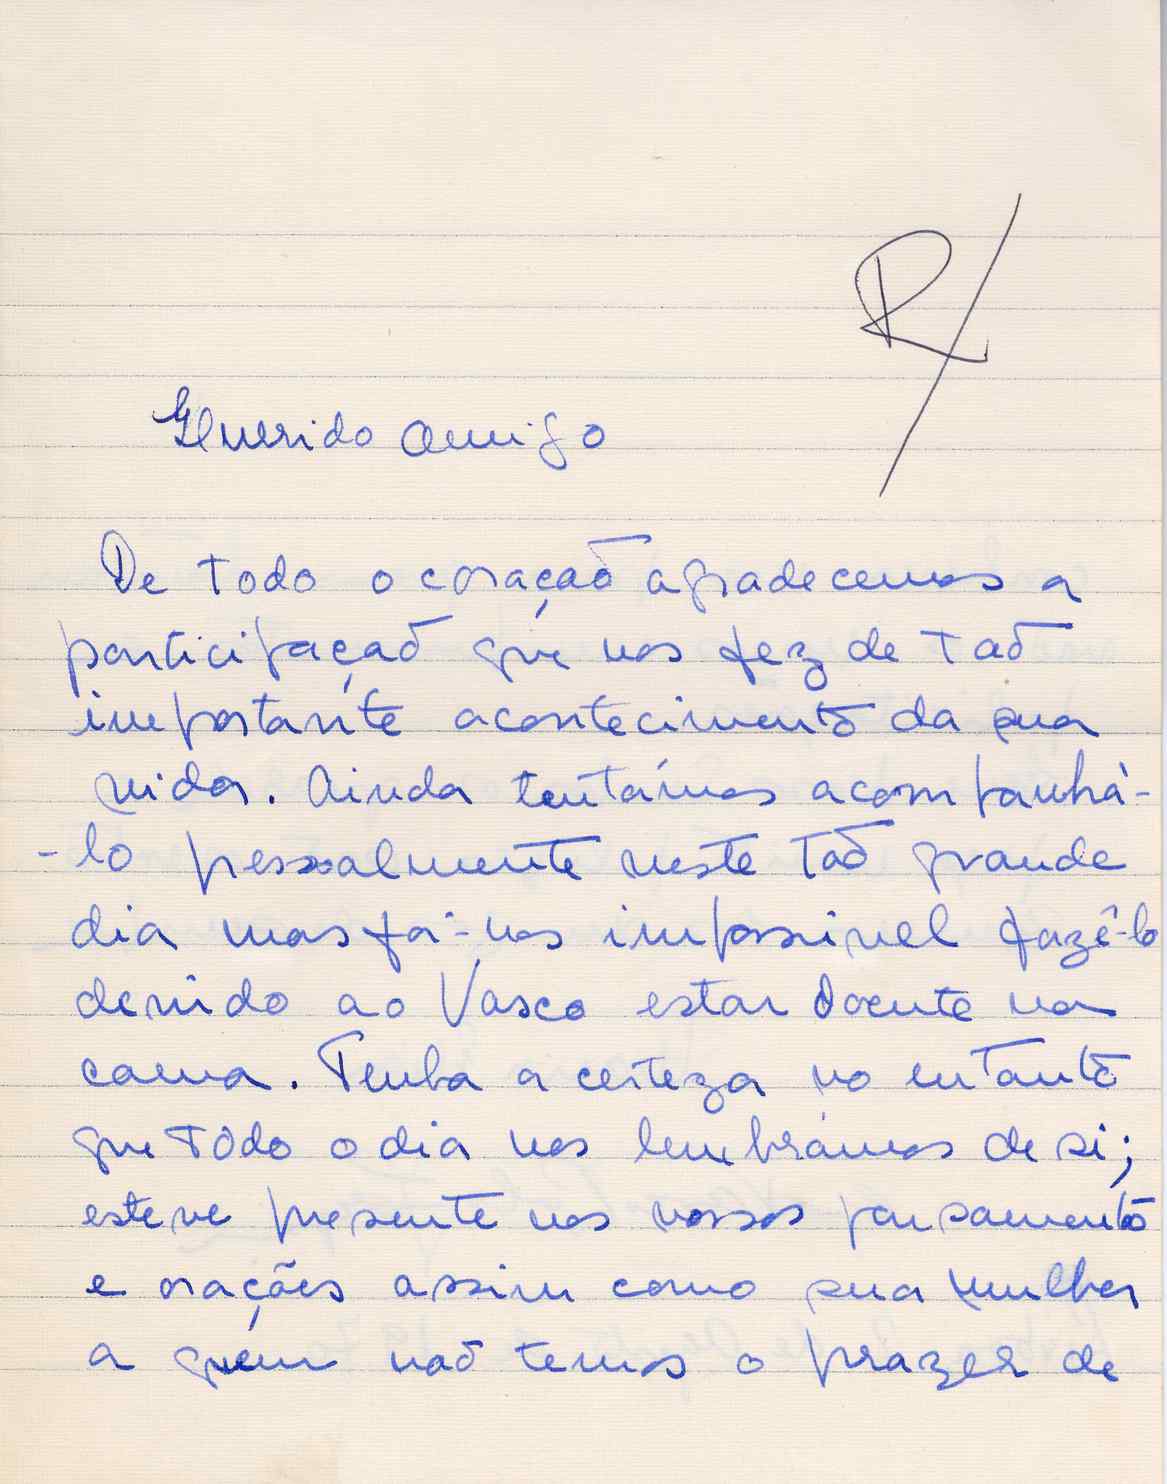 R/
Querido Amigo
De todo o coração agradecemos a
participação que nos fez de tão
importante acontecimento da sua
vida. Ainda tentámos acompanhá-
-lo pessoalmente neste tão grande
dia mas foi-nos impossível fazê-lo
devido ao Vasco estar doente na
cama. Tenha a certeza no entanto
que todo o dia nos lembrámos de si;
esteve presente nos nossos pensamentos
e orações assim como sua mulher
a quem não temos o prazer de